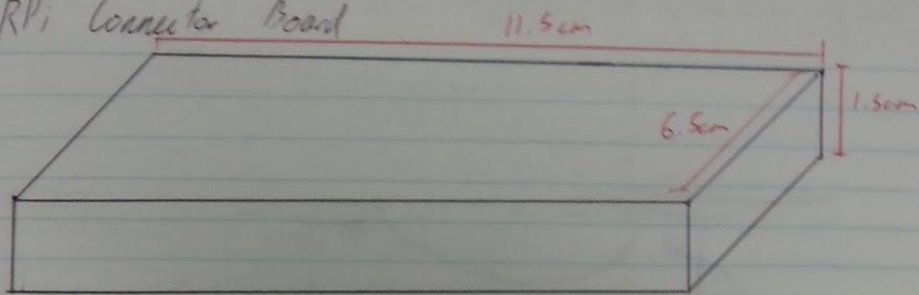 RPi Connector Board
11.5cm
6.5cm
1.5cm